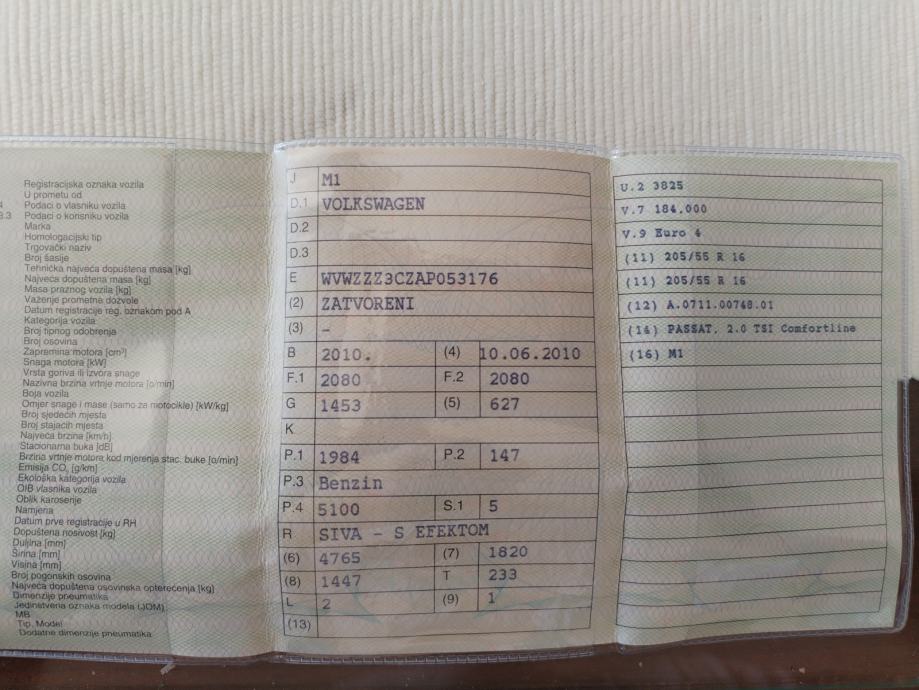 Registracijska oznaka vozila
U prometu od
4 Podaci o vlasniku vozila
3.3 Podaci o korisniku vozila
Marka
Homologacijski tip
Trgovački naziv
Broj šasije
Tehnička najveća dopuštena masa [kg]
Najveća dopuštena masa [kg]
Masa praznog vozila [kg]
Važenje prometne dozvole
Datum registracije reg. oznakom pod A
Kategorija vozila
Broj tipnog odobrenja
Broj osovina
Zapremina motora [cm³]
Snaga motora [kW]
Vrsta goriva ili izvora snage
Nazivna brzina vrtnje motora [o/min]
Boja vozila
Omjer snage i mase (samo za motocikle) [kW/kg]
Broj sjedećih mjesta
Broj stajaćih mjesta
Najveća brzina [km/h]
Stacionarna buka [dB]
Brzina vrtnje motora kod mjerenja stac. buke [o/min]
Emisija CO₂ [g/km]
Ekološka kategorija vozila
OIB vlasnika vozila
Oblik karoserije
Namjena
Datum prve registracije u RH
Dopuštena nosivost [kg]
Duljina [mm]
Širina [mm]
Visina [mm]
Broj pogonskih osovina
Najveća dopuštena osovinska opterećenja [kg]
Dimenzije pneumatika
Jedinstvena oznaka modela (JOM)
MB
Tip, Model
Dodatne dimenzije pneumatika
J M1
D.1 VOLKSWAGEN
D.2
D.3
E WVWZZZ3CZAP053176
(2) ZATVORENI
(3) -
B 2010. (4) 10.06.2010
F.1 2080 F.2 2080
G 1453 (5) 627
K
P.1 1984 P.2 147
P.3 Benzin
P.4 5100 S.1 5
R SIVA - S EFEKTOM
(6) 4765 (7) 1820
(8) 1447 T 233
L 2 (9) 1
(13)
U.2 3825
V.7 184,000
V.9 Euro 4
(11) 205/55 R 16
(11) 205/55 R 16
(12) A.0711.00748.01
(14) PASSAT, 2.0 TSI Comfortline
(16) M1